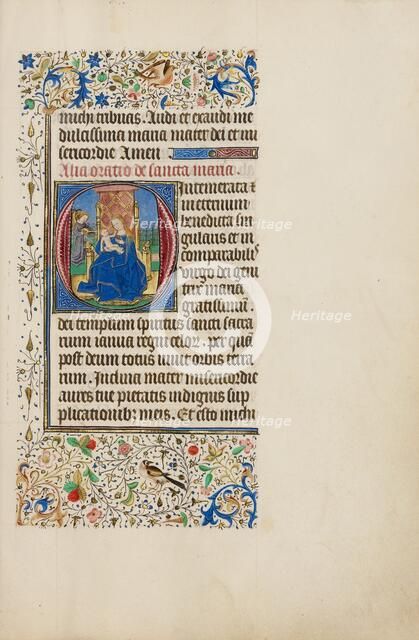 michi tribuas. Audi et exaudi me
dulcissima maria mater dei et mi
sericordie Amen
Alia oratio de sancta maria.
O Intemerata et
in eternum
benedicta sin
gularis et in
comparabilis
virgo dei geni
trix maria
gratissimum
dei templum spiritus sancti sacra
rium ianua regni celorum. per quam
post deum totus vivit orbis terra
rum. Inclina mater misericordie
aures tue pietatis indignis sup
plicationibus meis. Et esto michi
Heritage
Images
Heritage
Images
Heritage
Images
Heritage
Images